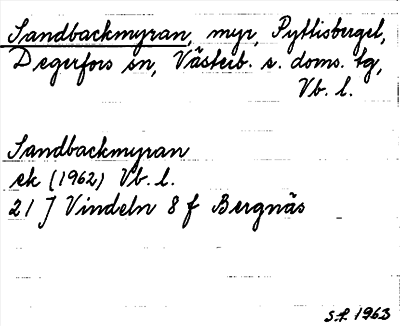 Sandbackmyran, myr, Pyttisberget,
Degerfors sn, Västerb. s. doms. tg,
Vb. l.
Sandbackmyran
ek (1962) Vb. l.
21 J Vindeln 8 f Bergnäs
S.f. 1963